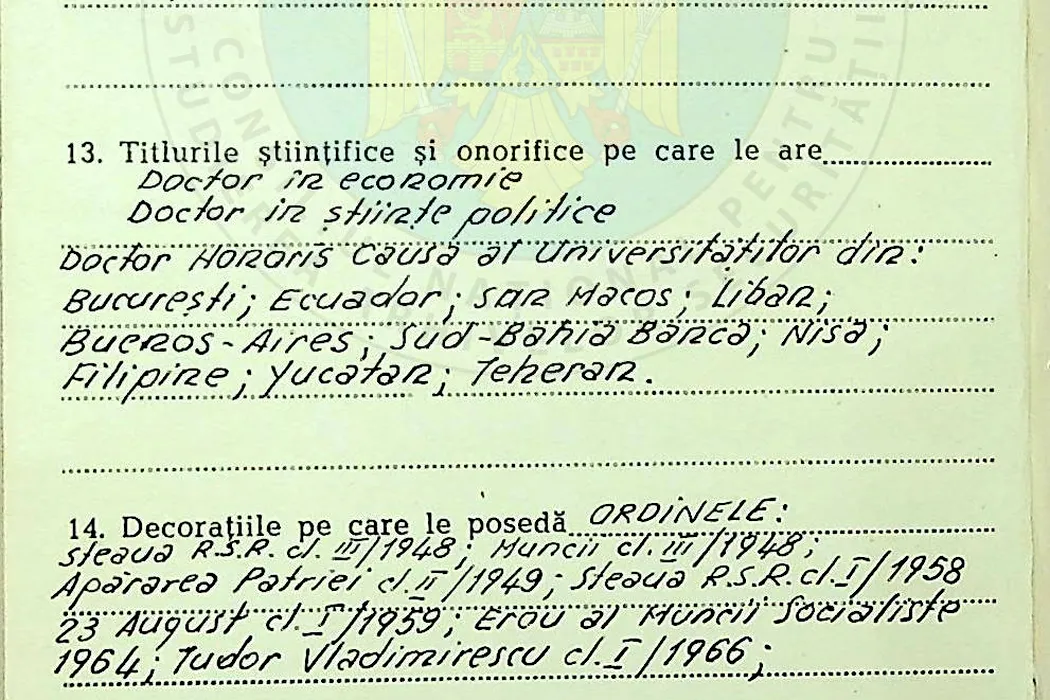 13. Titlurile științifice și onorifice pe care le are
Doctor în economie
Doctor în științe politice
Doctor Honoris Causa al Universităților din:
București; Ecuador; San Macos; Liban;
Buenos-Aires; Sud-Bahia Banca; Nisa;
Filipine; Yucatan; Teheran.
14. Decorațiile pe care le posedă ORDINELE:
Steaua R.S.R. cl. III/1948; Muncii cl. III/1948;
Apărarea Patriei cl. II/1949; Steaua R.S.R. cl. I/1958
23 August cl. I/1959; Erou al Muncii Socialiste
1964; Tudor Vladimirescu cl. I/1966;